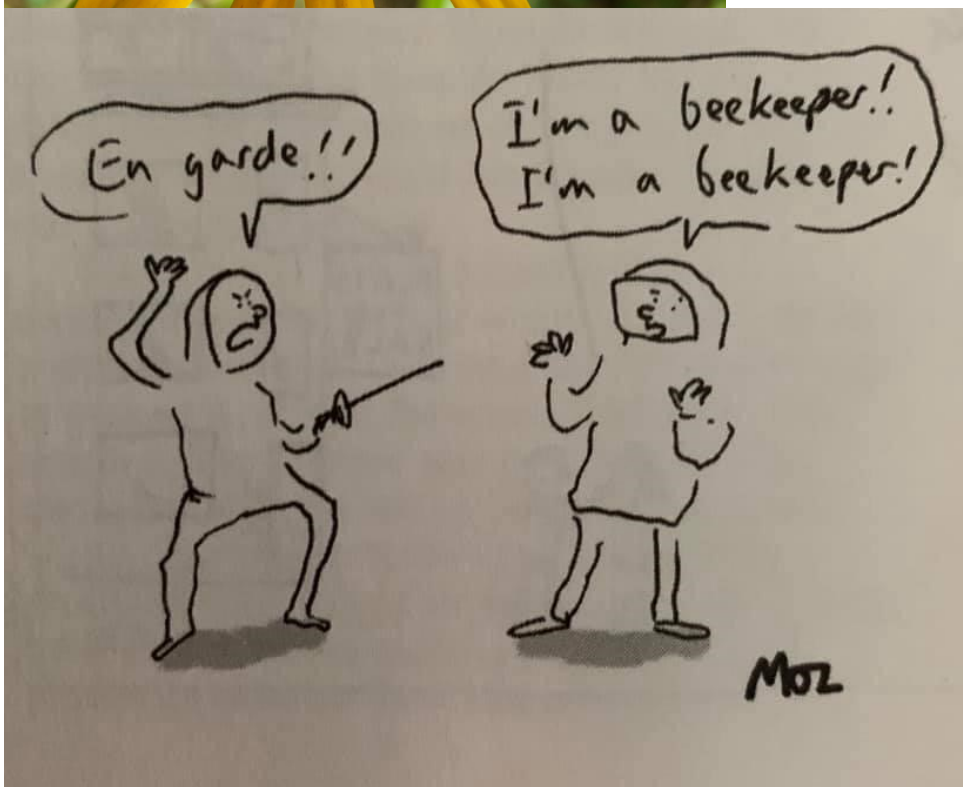 En garde!!
I'm a beekeeper!!
I'm a beekeeper!
Moz